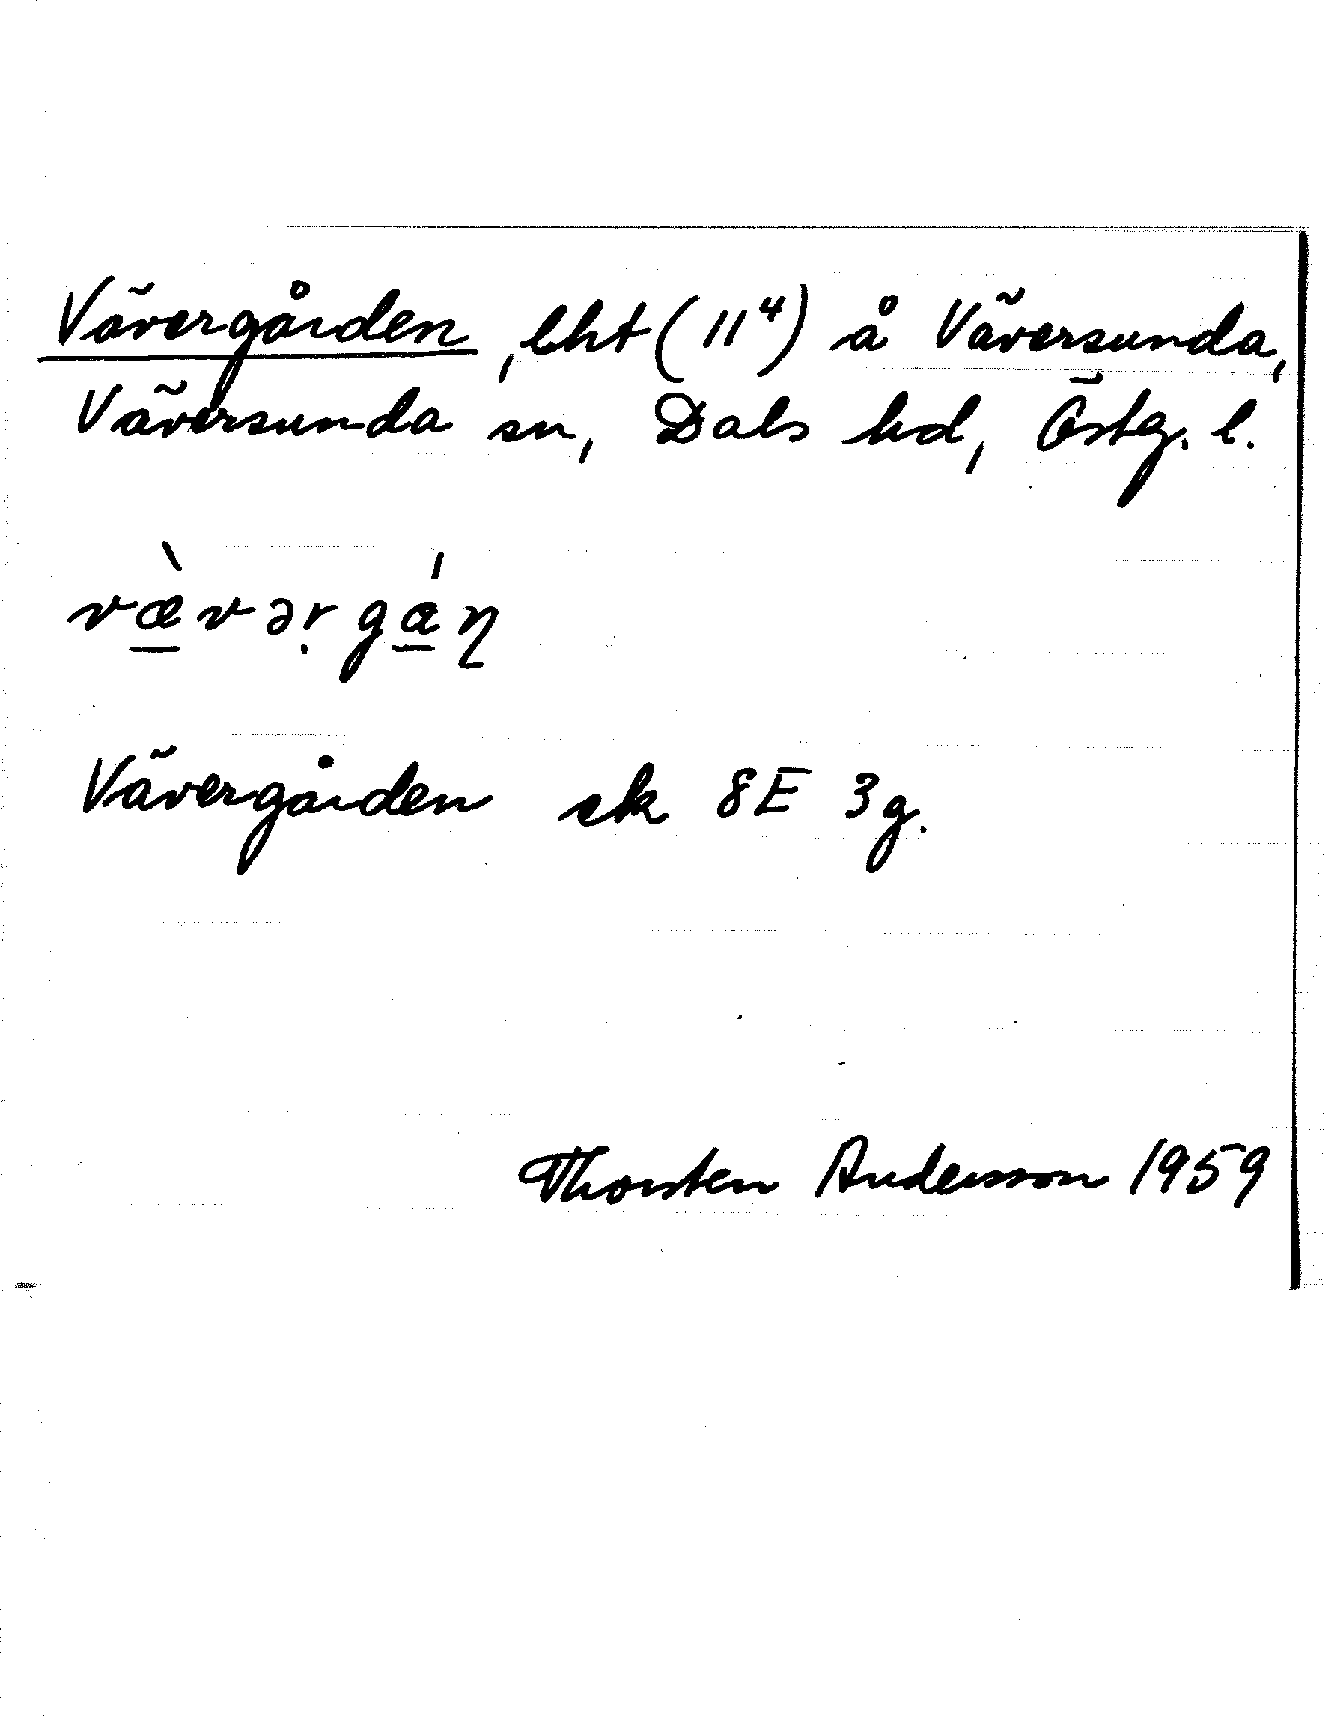 Vävergården, lht (11⁴) å Väversunda,
Väversunda sn, Dals hd, Östg. l.
væ̲̀vərg̣á̲ɳ
Vävergården ek 8E 3g.
Thorsten Andersson 1959